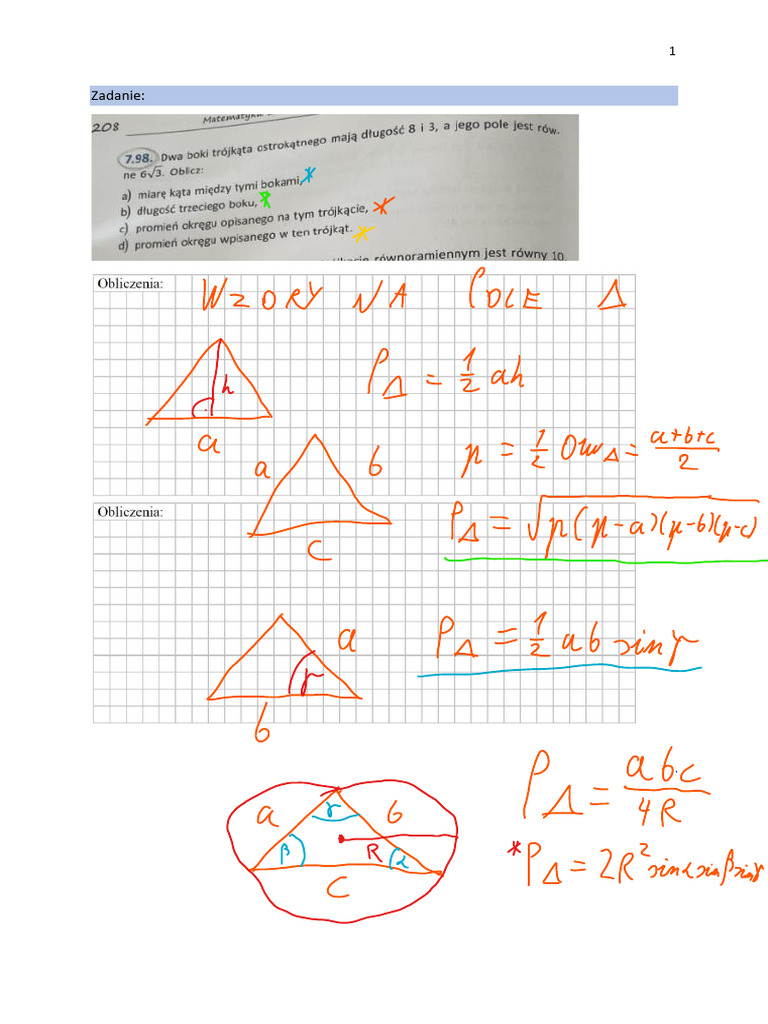 1
Zadanie:
208
Matematyka
7.98. Dwa boki trójkąta ostrokątnego mają długość 8 i 3, a jego pole jest rów-
ne 6√3. Oblicz:
a) miarę kąta między tymi bokami,
b) długość trzeciego boku,
c) promień okręgu opisanego na tym trójkącie,
d) promień okręgu wpisanego w ten trójkąt.
równoramiennym jest równy 10.
Obliczenia:
WZORY NA POLE Δ
h
a
P_Δ = 1/2 ah
a b
c
p = 1/2 Obw_Δ = (a+b+c)/2
Obliczenia:
P_Δ = √(p(p-a)(p-b)(p-c))
a
γ
b
P_Δ = 1/2 ab sinγ
a γ b
β R α
c
P_Δ = abc/4R
* P_Δ = 2R² sinα sinβ sinγ